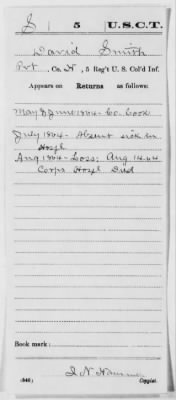 S | 5 | U.S.C.T.
David Smith
Pvt, Co. H, 5 Reg't U. S. Col'd Inf.
Appears on Returns as follows:
May & June 1864 - Co. Cook
July 1864 - Absent sick in
Hospl
Aug 1864 - Loss; Aug 14-64
Corps Hospl Died
Book mark:
(546)
Copyist.